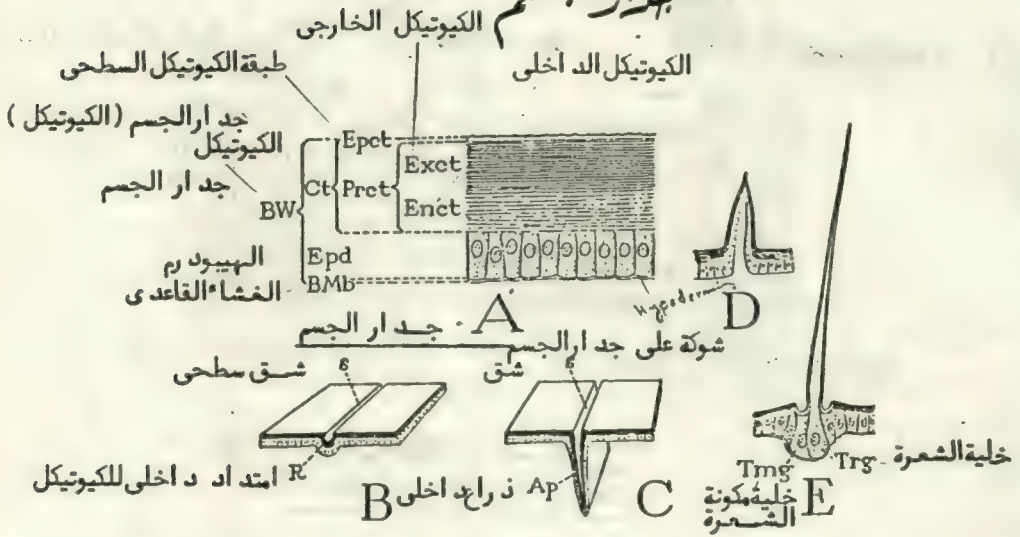 جدار الجسم
الكيوتيكل الخارجى
الكيوتيكل الداخلى
طبقة الكيوتيكل السطحى
جدار الجسم (الكيوتيكل)
الكيوتيكل
جدار الجسم
BW
Ct
Epct
Prct
Exct
Enct
Epd
BMb
الهيبودرم
الغشاء القاعدى
Hypoderm
A
D
جدار الجسم
شوكة على جدار الجسم
شق سطحى
s
شق
s
R
امتداد داخلى للكيوتيكل
B
ذراع داخلى
Ap
C
Tmg
Trg
خلية الشعرة
خلية مكونة
الشعرة
E